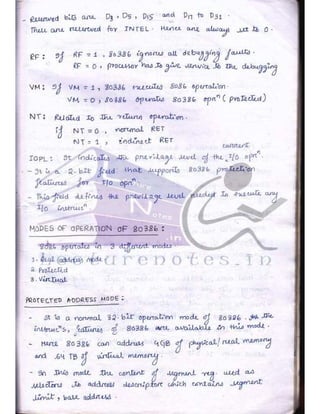 - Reserved bits are D3, D5, D15 and D17 to D31.
These are reserved for INTEL. Hence are always set to 0.
RF: If RF = 1, 80386 ignores all debugging faults.
RF = 0, processor has to give service to the debugging
VM: If VM = 1, 80386 executes 8086 operation.
VM = 0, 80386 operates 80386 opnⁿ (Protected)
NT: Related to the return operation.
If NT = 0, normal RET
NT = 1, indirect RET
current
IOPL: It indicates the previlage level of the I/O opnⁿ.
- It is a 2-bit field that supports 80386 protection
features for I/O opnⁿ.
- This field defines the previlage level needed to execute any
I/O instrucⁿ
MODES OF OPERATION OF 80386:
8086 operates in 3 different modes
1. Real (address) Mode
2. Protected
3. Virtual
PROTECTED ADDRESS MODE:
- It is a normal 32-bit operation mode of 80386. All the
instrucⁿs, features of 80386 are available in this mode.
- Here 80386 can address 4GB of physical/real memory
and 64 TB of virtual memory.
- In this mode the content of segment reg. used as
selectors to address descriptors which contains segment
limit, base address.